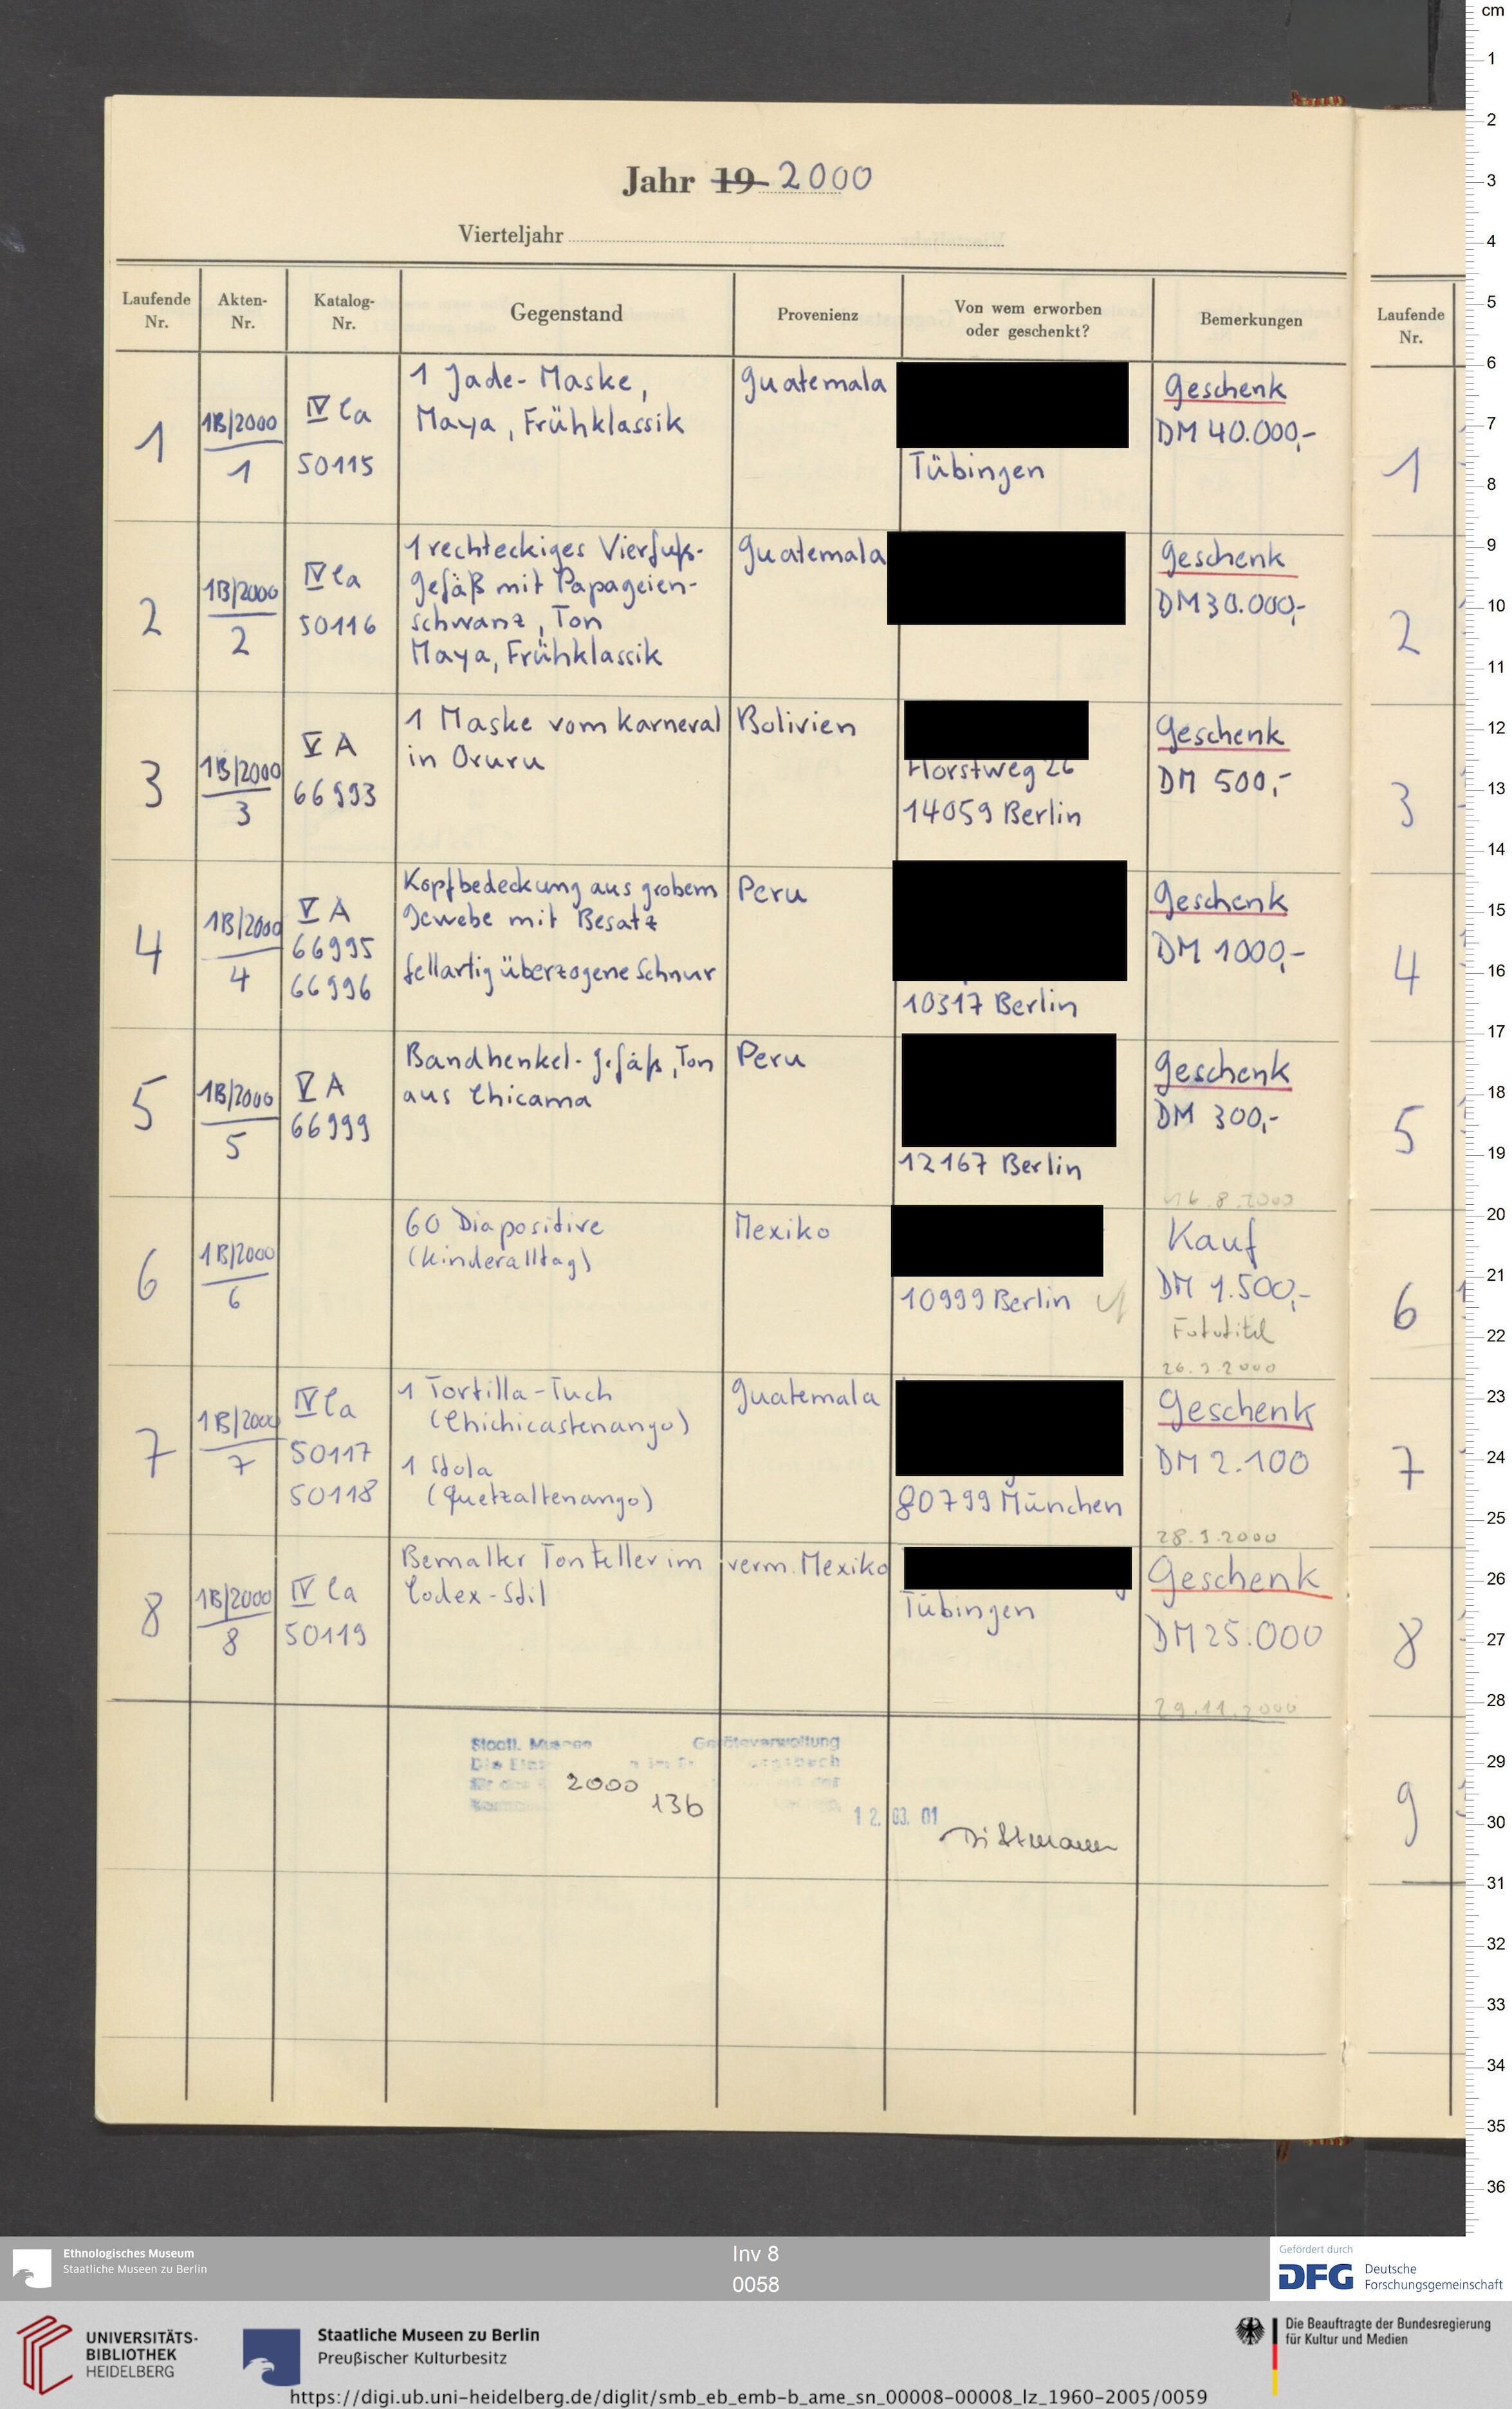 Jahr 19 2000
Vierteljahr
Laufende Nr.
Akten-Nr.
Katalog-Nr.
Gegenstand
Provenienz
Von wem erworben oder geschenkt?
Bemerkungen
Laufende Nr.
1
1B/2000
1
IV Ca
50115
1 Jade-Maske,
Maya, Frühklassik
Guatemala
Tübingen
Geschenk
DM 40.000,-
1
2
1B/2000
2
IV Ca
50116
1 rechteckiges Vierfuß-
gefäß mit Papageien-
schwanz, Ton
Maya, Frühklassik
Guatemala
Geschenk
DM 30.000,-
2
3
1B/2000
3
V A
66993
1 Maske vom Karneval
in Oruru
Bolivien
Horstweg 26
14059 Berlin
Geschenk
DM 500,-
3
4
1B/2000
4
V A
66995
66996
Kopfbedeckung aus grobem
Gewebe mit Besatz
fellartig überzogene Schnur
Peru
10317 Berlin
Geschenk
DM 1000,-
4
5
1B/2000
5
V A
66999
Bandhenkel-Gefäß, Ton
aus Chicama
Peru
12167 Berlin
Geschenk
DM 300,-
16.8.2000
5
6
1B/2000
6
60 Diapositive
(Kinderalltag)
Mexiko
10999 Berlin
Kauf
DM 1.500,-
Fototitel
26.9.2000
6
7
1B/2000
7
IV Ca
50117
50118
1 Tortilla-Tuch
(Chichicastenango)
1 Stola
(Quetzaltenango)
Guatemala
80799 München
Geschenk
DM 2.100
28.9.2000
7
8
1B/2000
8
IV Ca
50119
Bemalter Tonteller im
Codex-Stil
verm. Mexiko
Tübingen
Geschenk
DM 25.000
29.11.2000
8
Staatl. Museen Geräteverwaltung
2000
136
12. 03. 01
Dittmann
9
cm
1
2
3
4
5
6
7
8
9
10
11
12
13
14
15
16
17
18
19
20
21
22
23
24
25
26
27
28
29
30
31
32
33
34
35
36
Ethnologisches Museum
Staatliche Museen zu Berlin
Inv 8
0058
Gefördert durch
DFG Deutsche
Forschungsgemeinschaft
UNIVERSITÄTS-
BIBLIOTHEK
HEIDELBERG
Staatliche Museen zu Berlin
Preußischer Kulturbesitz
Die Beauftragte der Bundesregierung
für Kultur und Medien
https://digi.ub.uni-heidelberg.de/diglit/smb_eb_emb-b_ame_sn_00008-00008_lz_1960-2005/0059